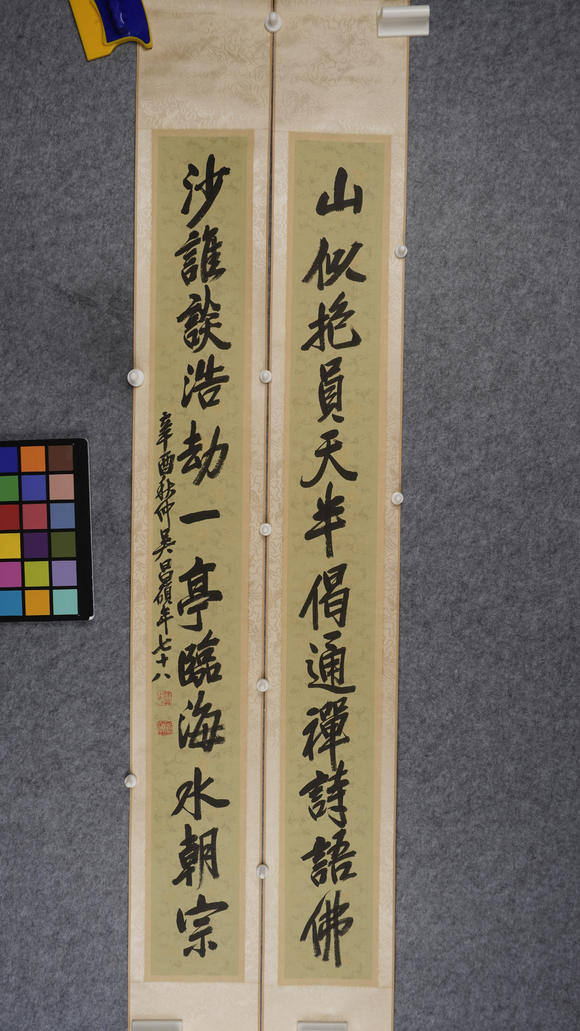 山似抱員天半偈通禪詩語佛
沙誰談浩劫一亭臨海水朝宗
辛酉秋仲吳昌碩年七十八